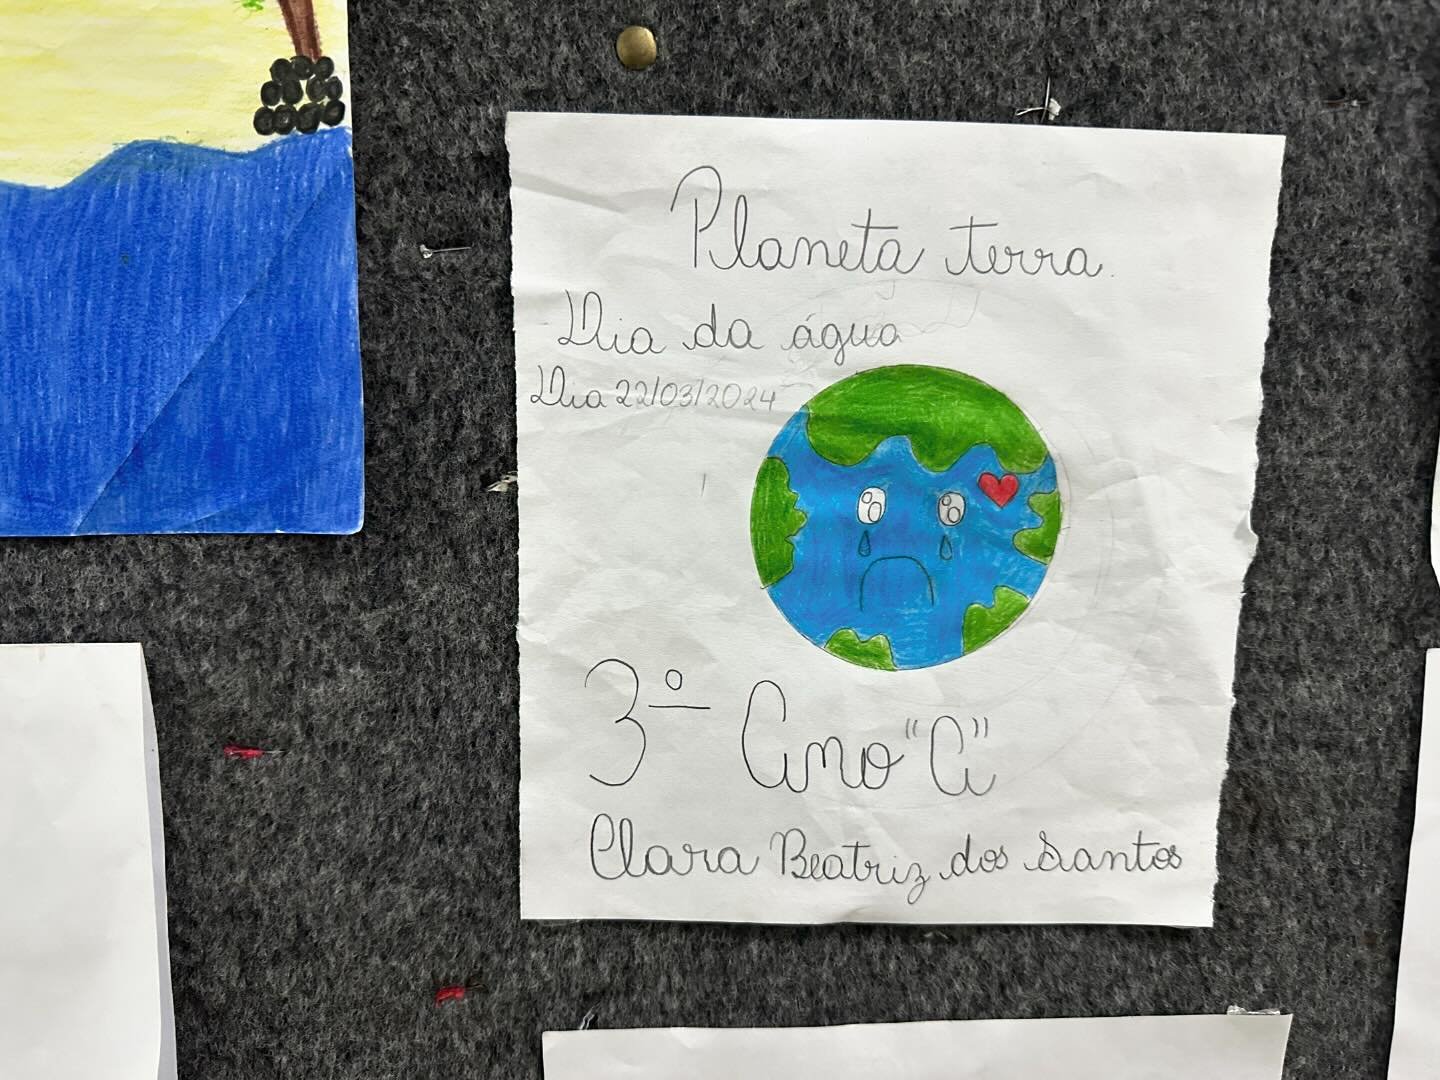 Planeta terra.
Dia da água
Dia 22/03/2024
3º Ano "A"
Clara Beatriz dos Santos